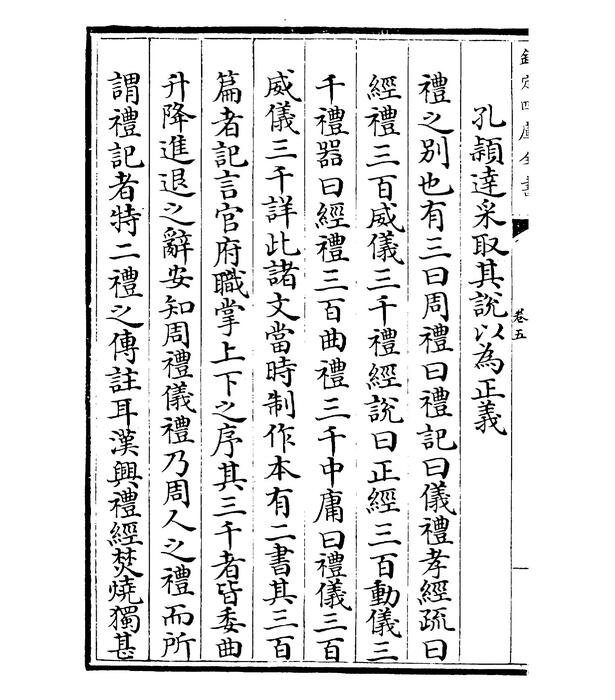 欽定四庫全書
卷五
孔頴達采取其説以為正義
禮之别也有三曰周禮曰禮記曰儀禮孝經疏曰
經禮三百威儀三千禮經説曰正經三百動儀三
千禮器曰經禮三百曲禮三千中庸曰禮儀三百
威儀三千詳此諸文當時制作本有二書其三百
篇者記言官府職掌上下之序其三千者皆委曲
升降進退之辭安知周禮儀禮乃周人之禮而所
謂禮記者特二禮之傳註耳漢興禮經焚燒獨甚